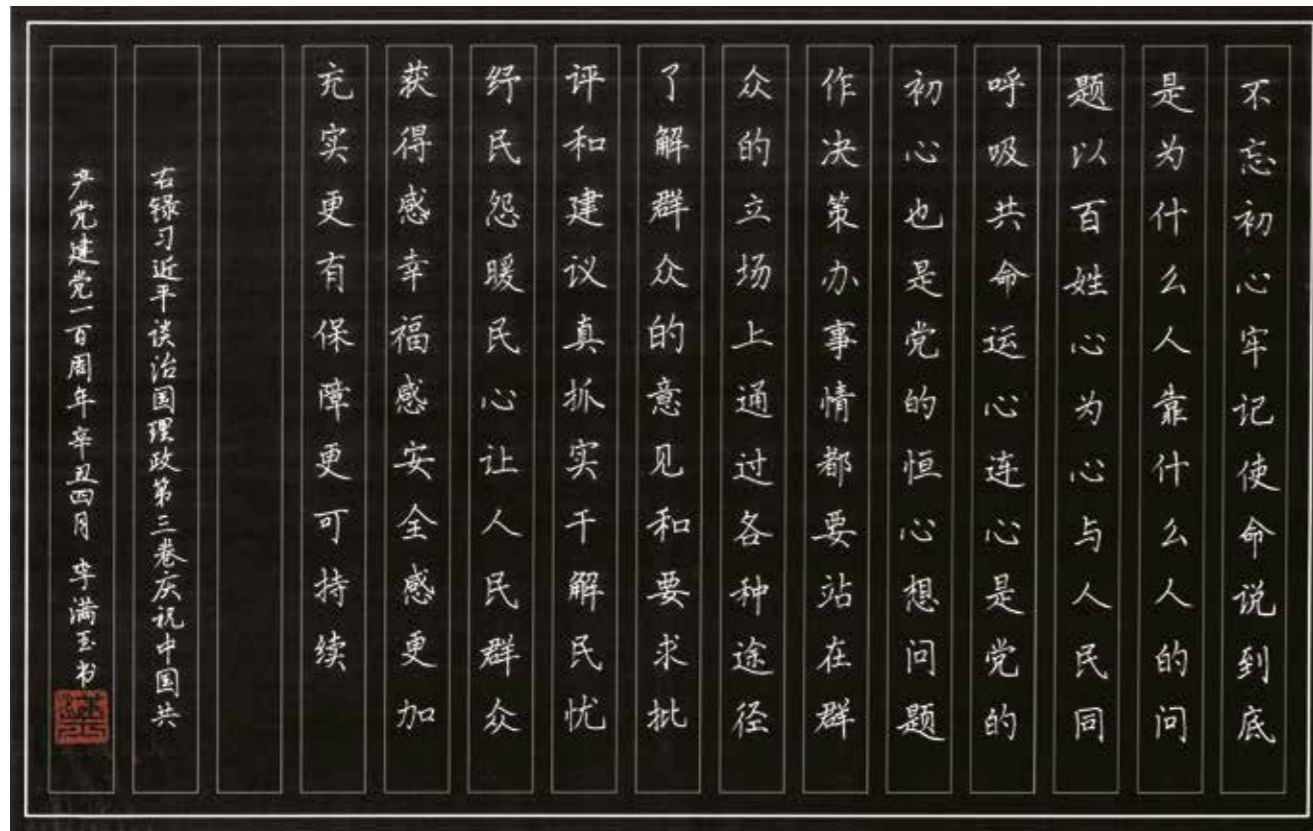 不忘初心牢记使命说到底
是为什么人靠什么人的问
题以百姓心为心与人民同
呼吸共命运心连心是党的
初心也是党的恒心想问题
作决策办事情都要站在群
众的立场上通过各种途径
了解群众的意见和要求批
评和建议真抓实干解民忧
纾民怨暖民心让人民群众
获得感幸福感安全感更加
充实更有保障更可持续
右录习近平谈治国理政第三卷庆祝中国共
产党建党一百周年辛丑四月 李满玉书